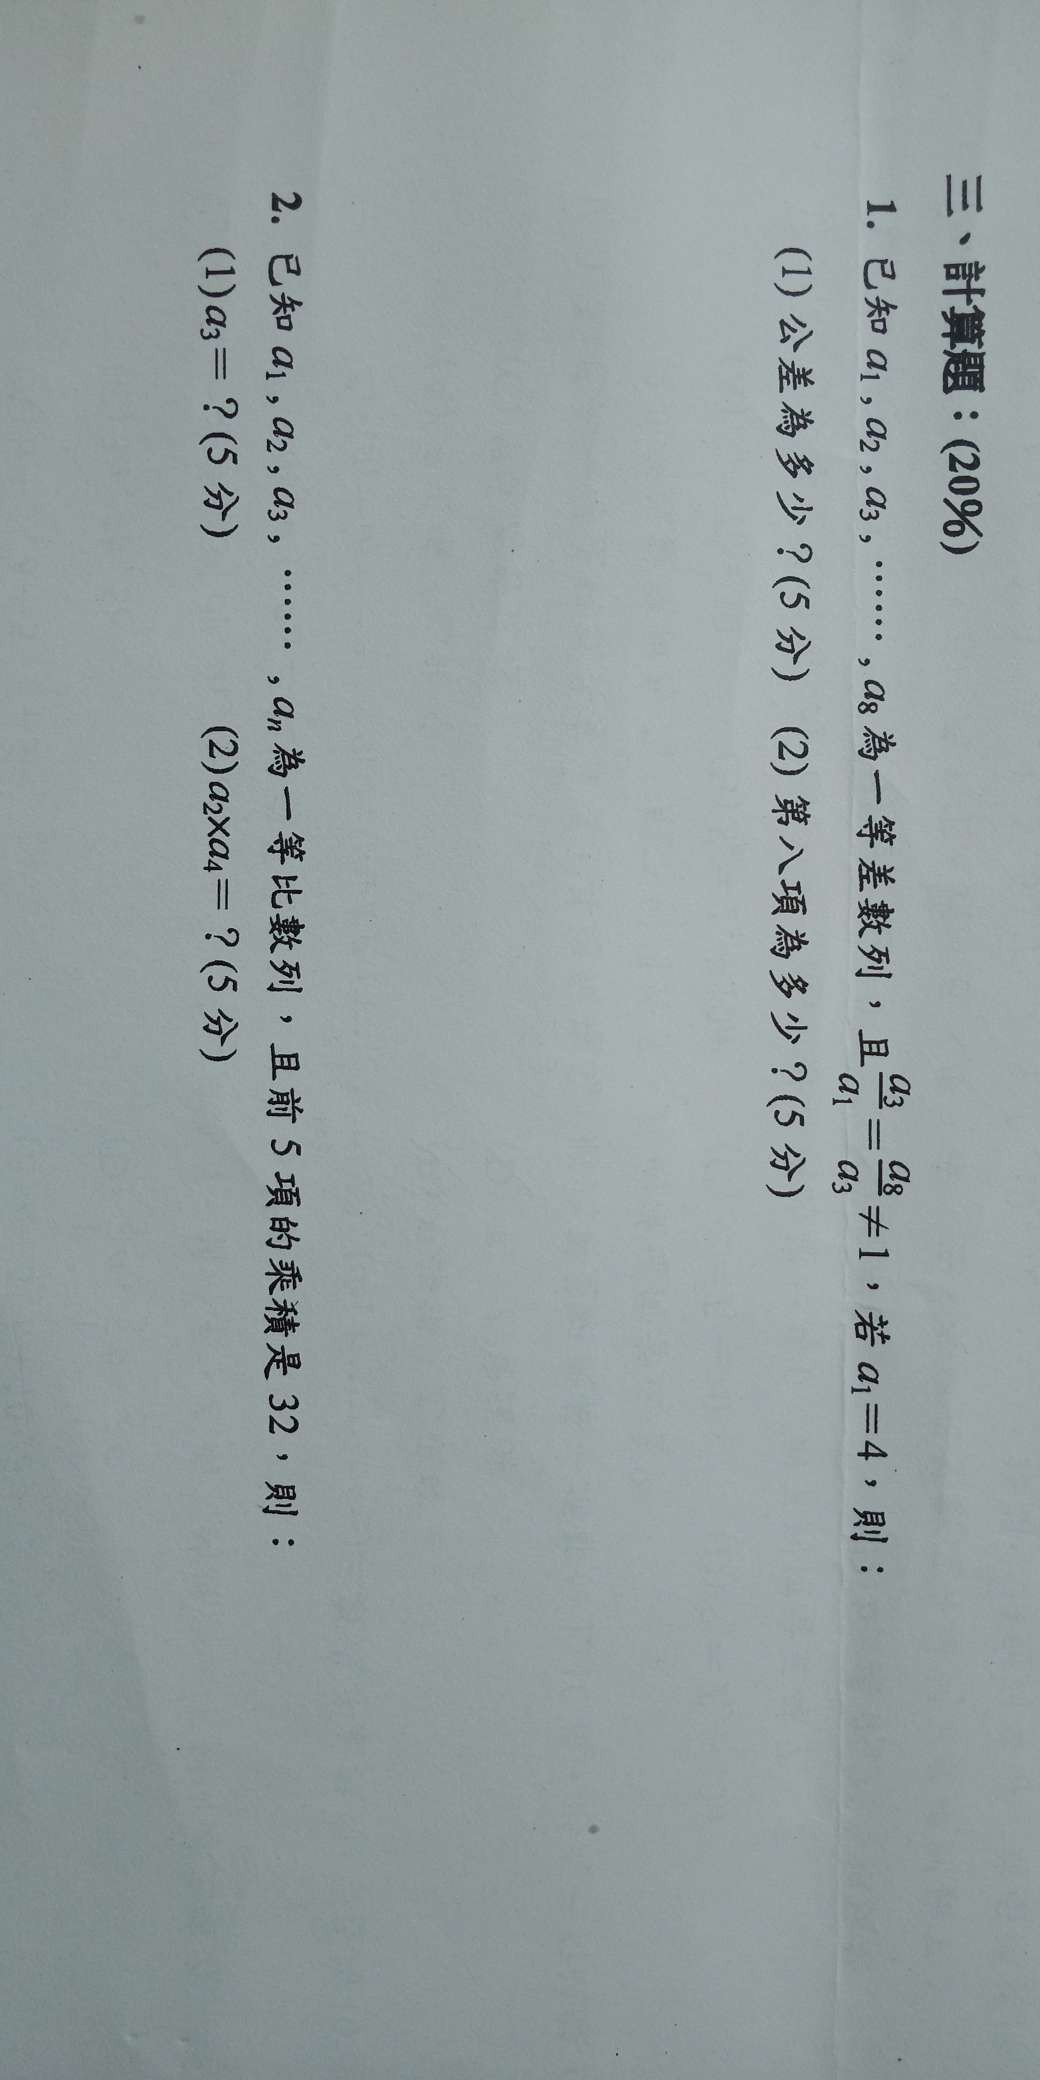 三、計算題：(20%)
1. 已知 a₁, a₂, a₃, ……, a₈ 為一等差數列，且 a₃/a₁ = a₈/a₃ ≠ 1，若 a₁=4，則：
(1) 公差為多少？(5 分) (2) 第八項為多少？(5 分)
2. 已知 a₁, a₂, a₃, ……, aₙ 為一等比數列，且前 5 項的乘積是 32，則：
(1)a₃=？(5 分) (2)a₂×a₄=？(5 分)